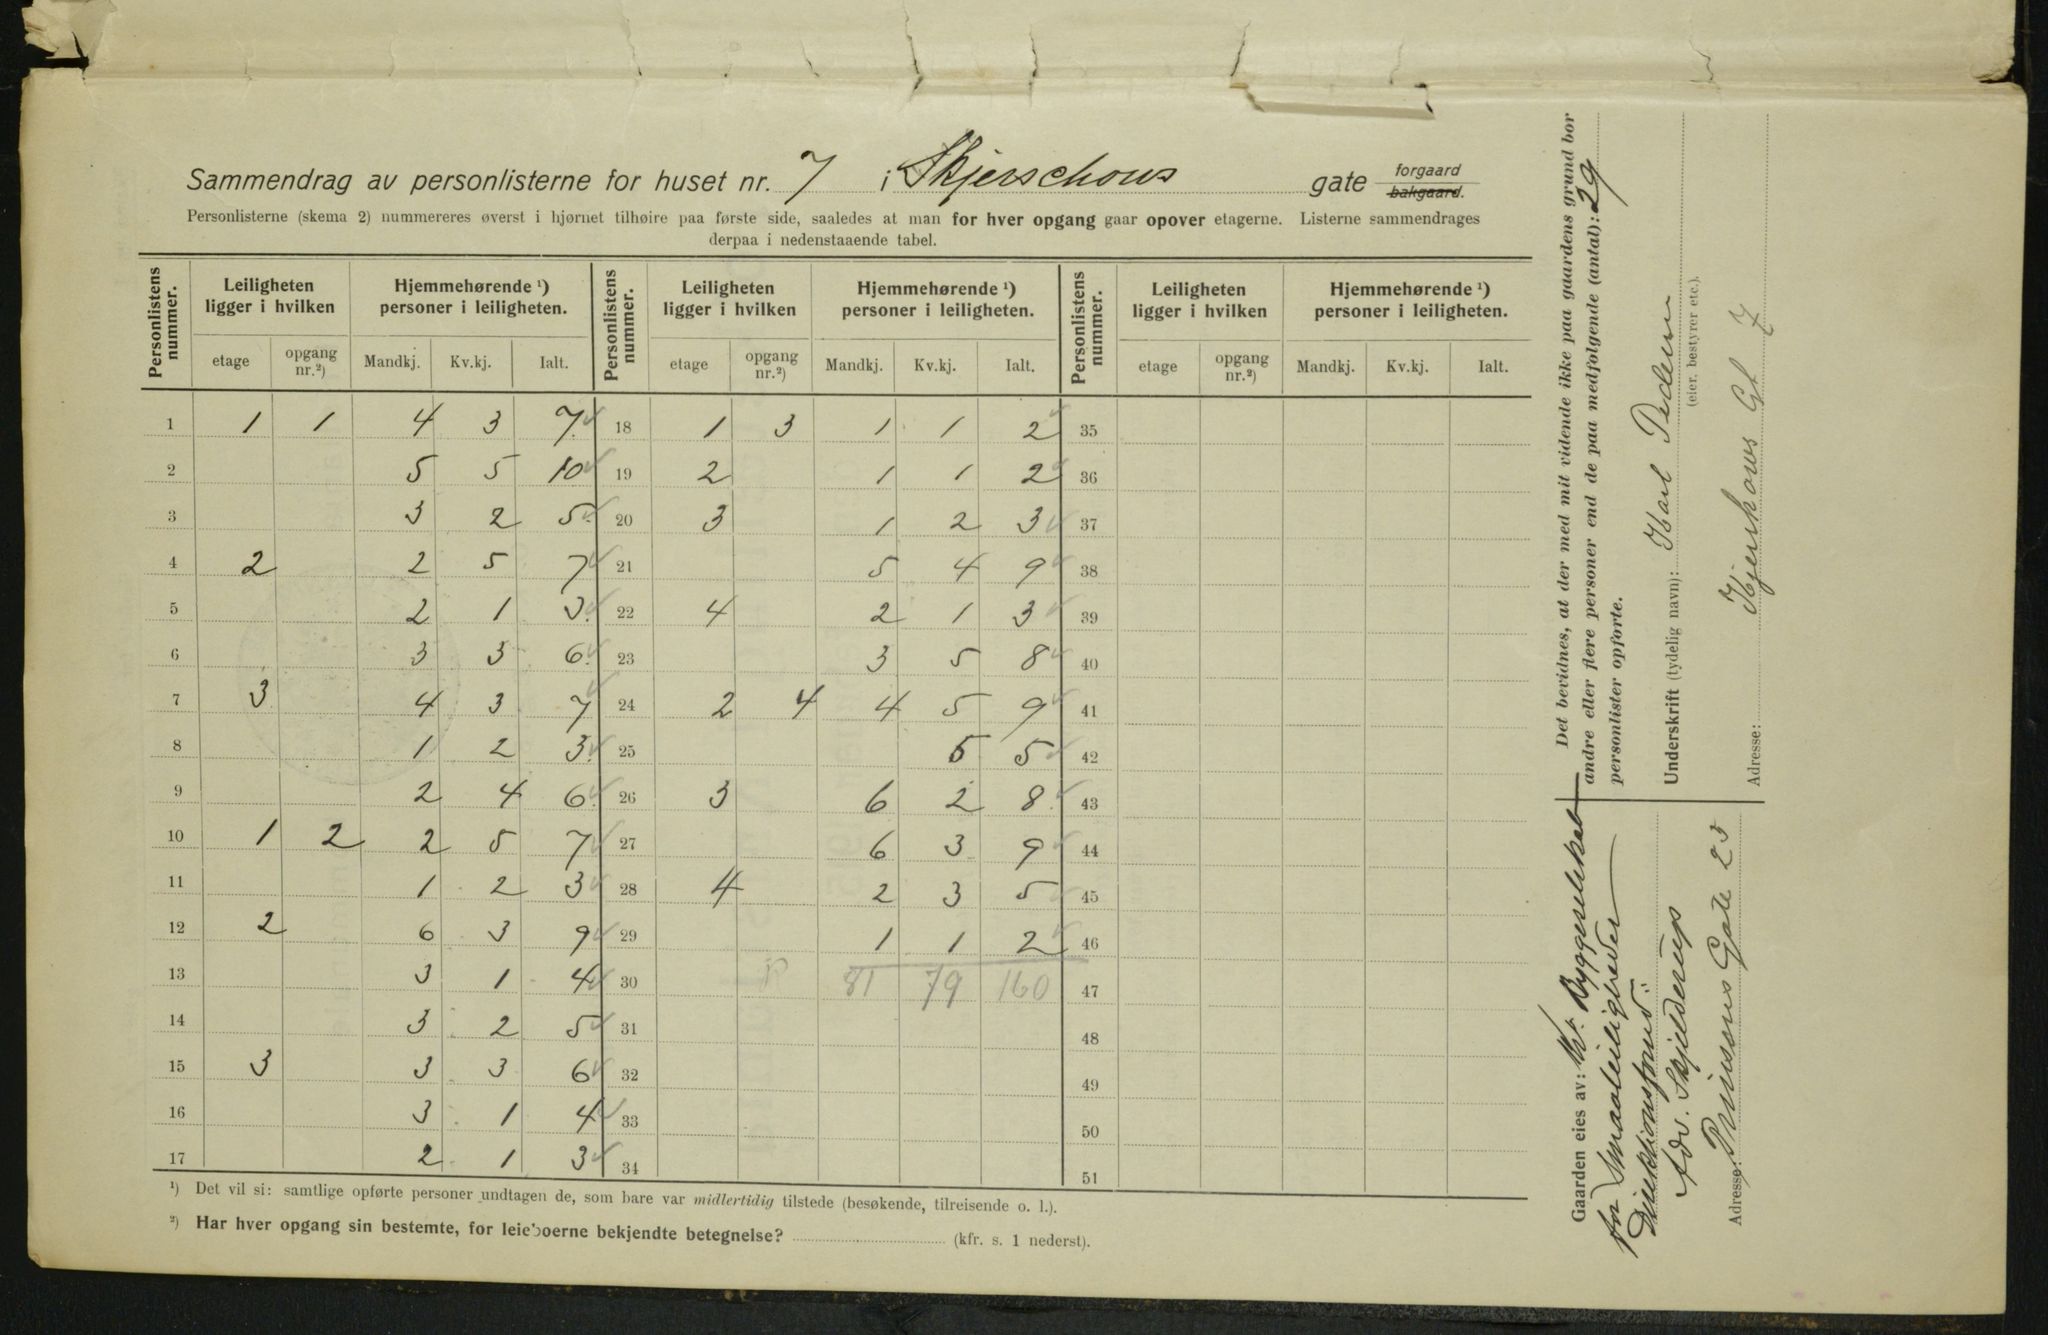 Sammendrag av personlisterne for huset nr. 7 i Skjerschows gate forgaard bakgaard.
Personlisterne (skema 2) nummereres øverst i hjørnet tilhøire paa første side, saaledes at man for hver opgang gaar opover etagerne. Listerne sammendrages
derpaa i nedenstaaende tabel.
Personlistens nummer. Leiligheten ligger i hvilken Hjemmehørende ¹) personer i leiligheten. Personlistens nummer. Leiligheten ligger i hvilken Hjemmehørende ¹) personer i leiligheten. Personlistens nummer. Leiligheten ligger i hvilken Hjemmehørende ¹) personer i leiligheten.
etage opgang nr.²) Mandkj. Kv.kj. Ialt. etage opgang nr.²) Mandkj. Kv.kj. Ialt. etage opgang nr.²) Mandkj. Kv.kj. Ialt.
1 1 1 4 3 7 18 1 3 1 1 2 35
2 5 5 10 19 2 1 1 2 36
3 3 2 5 20 3 1 2 3 37
4 2 2 5 7 21 5 4 9 38
5 2 1 3 22 4 2 1 3 39
6 3 3 6 23 3 5 8 40
7 3 4 3 7 24 2 4 4 5 9 41
8 1 2 3 25 5 5 42
9 2 4 6 26 3 6 2 8 43
10 1 2 2 5 7 27 6 3 9 44
11 1 2 3 28 4 2 3 5 45
12 2 6 3 9 29 1 1 2 46
13 3 1 4 30 81 79 160 47
14 3 2 5 31 48
15 3 3 3 6 32 49
16 3 1 4 33 50
17 2 1 3 34 51
¹) Det vil si: samtlige opførte personer undtagen de, som bare var midlertidig tilstede (besøkende, tilreisende o. l.).
²) Har hver opgang sin bestemte, for leieboerne bekjendte betegnelse? (kfr. s. 1 nederst).
Det bevidnes, at der med mit vidende ikke paa gaardens grund bor
andre eller flere personer end de paa medfølgende (antal): 29
personlister opførte.
Underskrift (tydelig navn): Karl Pedersen
(eier, bestyrer etc.).
Adresse: Skjerschows Gt 7
Gaarden eies av: Kr. Byggeselskab
for Smaaleiligheder
Direktionsform:
Adv. Skjelderup
Adresse: Prinsens Gate 25